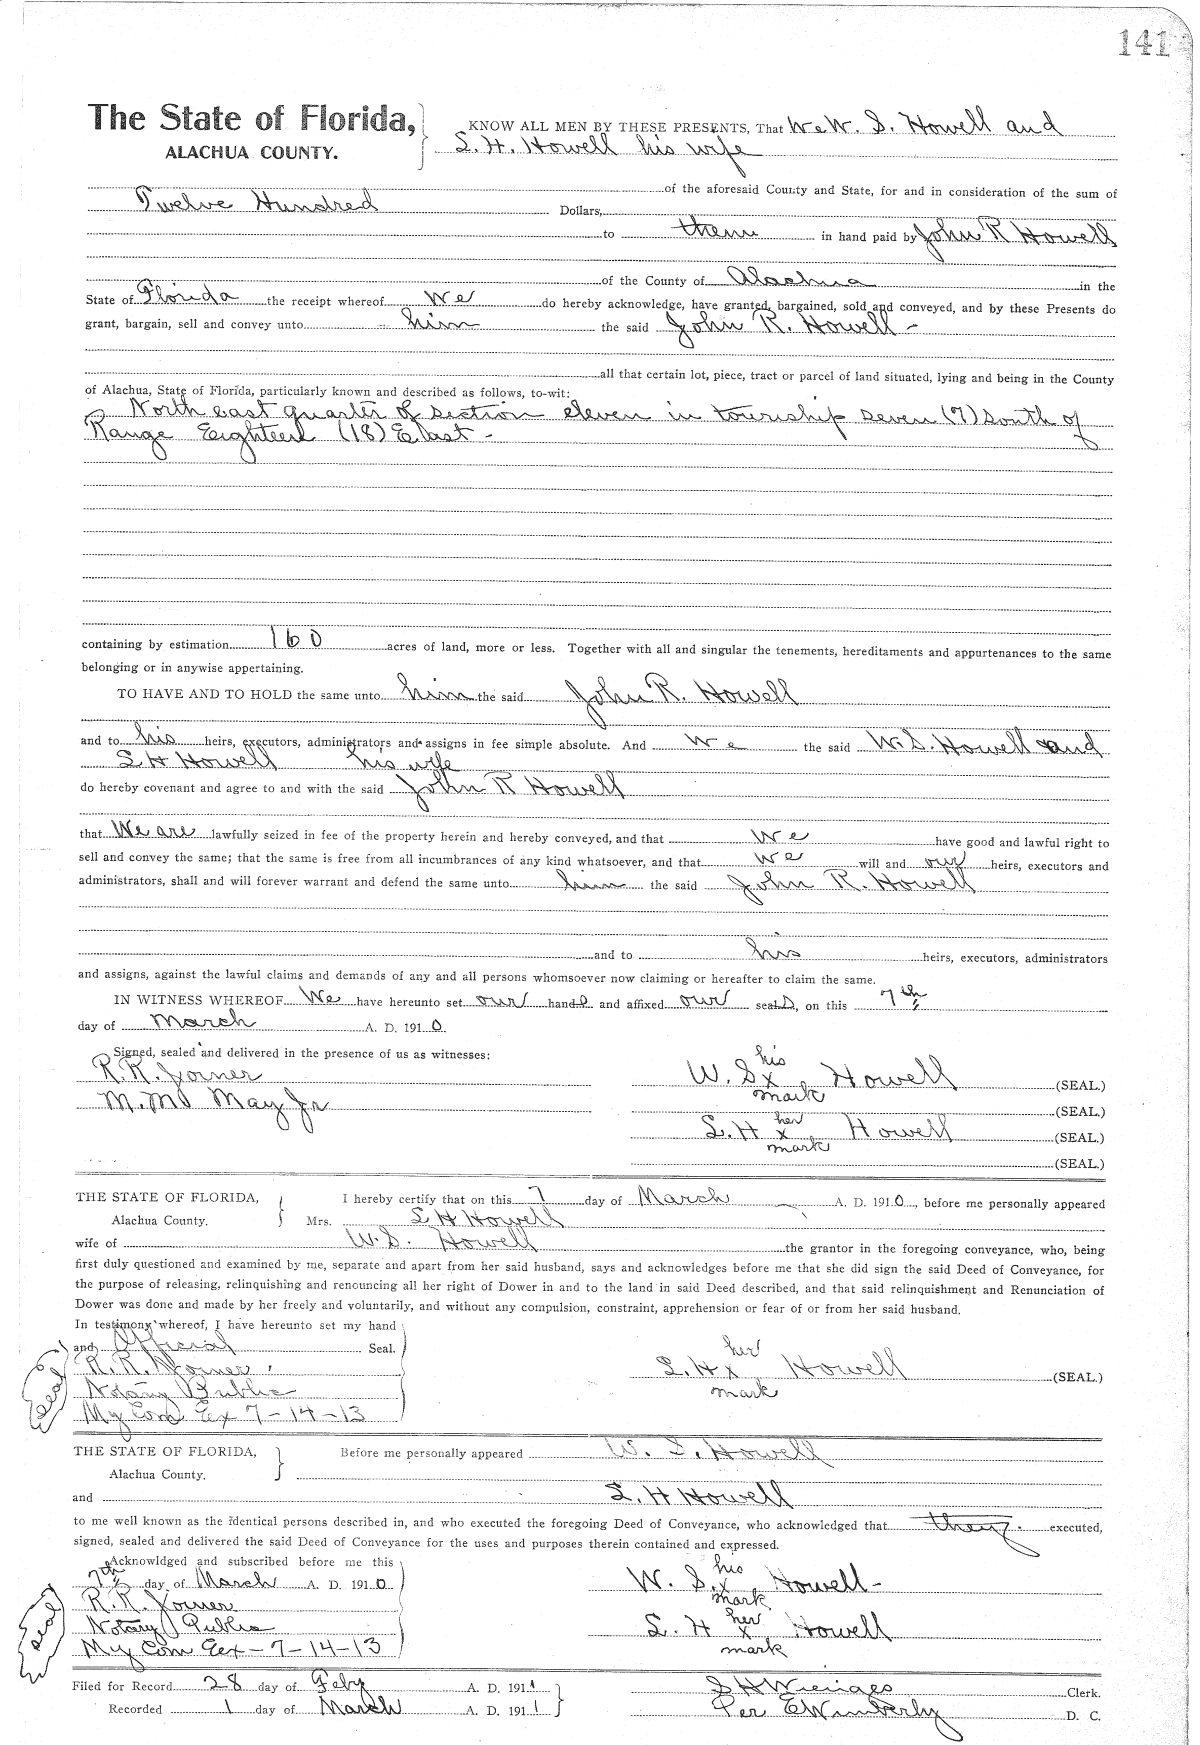 141
The State of Florida, KNOW ALL MEN BY THESE PRESENTS, That We W. S. Howell and
ALACHUA COUNTY. S. H. Howell his wife
of the aforesaid County and State, for and in consideration of the sum of
Twelve Hundred Dollars,
to them in hand paid by John R Howell
of the County of Alachua in the
State of Florida the receipt whereof We do hereby acknowledge, have granted, bargained, sold and conveyed, and by these Presents do
grant, bargain, sell and convey unto him the said John R. Howell -
all that certain lot, piece, tract or parcel of land situated, lying and being in the County
of Alachua, State of Florida, particularly known and described as follows, to-wit:
North east quarter of section eleven in township seven (7) South of
Range Eighteen (18) East -
containing by estimation 160 acres of land, more or less. Together with all and singular the tenements, hereditaments and appurtenances to the same
belonging or in anywise appertaining.
TO HAVE AND TO HOLD the same unto him the said John R. Howell
and to his heirs, executors, administrators and assigns in fee simple absolute. And We the said W. S. Howell and
S H Howell his wife
do hereby covenant and agree to and with the said John R Howell
that We are lawfully seized in fee of the property herein and hereby conveyed, and that We have good and lawful right to
sell and convey the same; that the same is free from all incumbrances of any kind whatsoever, and that We will and our heirs, executors and
administrators, shall and will forever warrant and defend the same unto him the said John R. Howell
and to his heirs, executors, administrators
and assigns, against the lawful claims and demands of any and all persons whomsoever now claiming or hereafter to claim the same.
IN WITNESS WHEREOF We have hereunto set our hands and affixed our seals, on this 7th
day of March A. D. 1910
Signed, sealed and delivered in the presence of us as witnesses:
R. R. Joiner W. S. his x mark Howell (SEAL.)
M. M. May Jr (SEAL.)
S. H her x mark Howell (SEAL.)
(SEAL.)
THE STATE OF FLORIDA, I hereby certify that on this 7 day of March A. D. 1910, before me personally appeared
Alachua County. Mrs. S H Howell
wife of W. S. Howell the grantor in the foregoing conveyance, who, being
first duly questioned and examined by me, separate and apart from her said husband, says and acknowledges before me that she did sign the said Deed of Conveyance, for
the purpose of releasing, relinquishing and renouncing all her right of Dower in and to the land in said Deed described, and that said relinquishment and Renunciation of
Dower was done and made by her freely and voluntarily, and without any compulsion, constraint, apprehension or fear of or from her said husband.
In testimony whereof, I have hereunto set my hand
and Official Seal.
Seal R. R. Joiner, S. H her x mark Howell (SEAL.)
Notary Public
My Com Ex 7-14-13
THE STATE OF FLORIDA, Before me personally appeared W. S. Howell
Alachua County.
and S. H Howell
to me well known as the identical persons described in, and who executed the foregoing Deed of Conveyance, who acknowledged that they executed,
signed, sealed and delivered the said Deed of Conveyance for the uses and purposes therein contained and expressed.
Acknowldged and subscribed before me this
7th day of March A. D. 1910 W. S. his x mark Howell -
R. R. Joiner
Seal Notary Public S. H her x mark Howell
My Com Ex - 7-14-13
Filed for Record 28 day of Feby A. D. 1911 S H Wienges Clerk.
Recorded 1 day of March A. D. 1911 Per E Wimberly D. C.